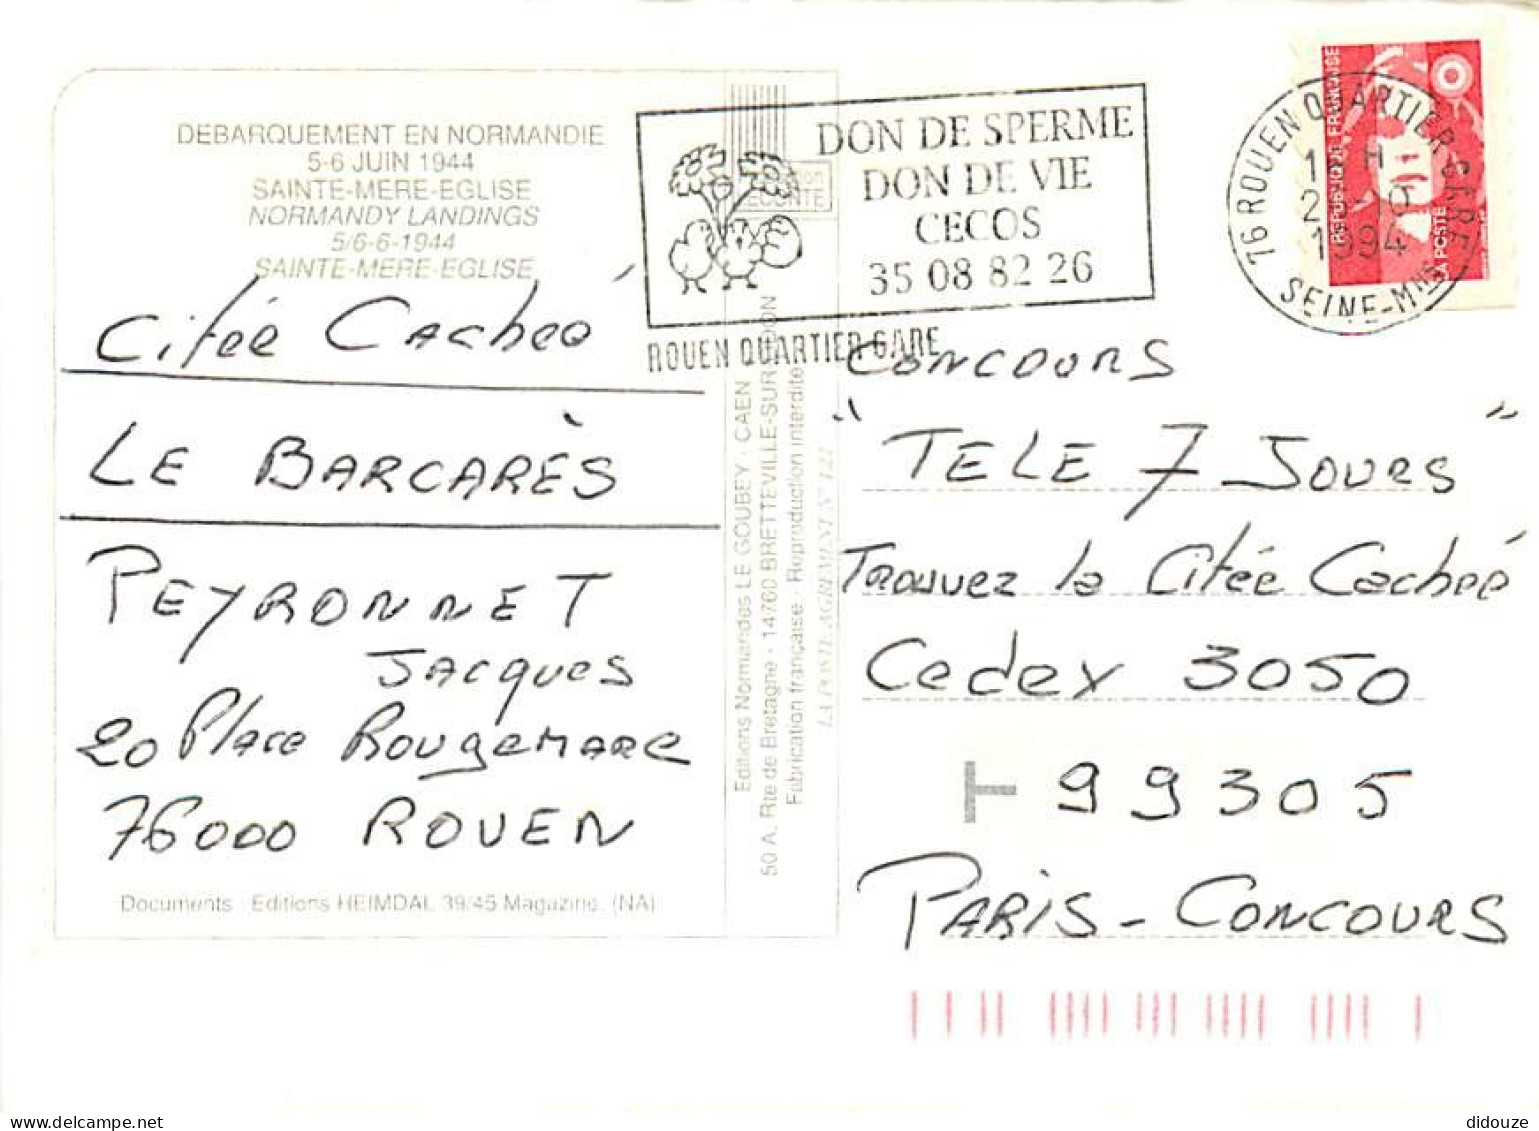 DEBARQUEMENT EN NORMANDIE
5-6 JUIN 1944
SAINTE-MERE-EGLISE
NORMANDY LANDINGS
5/6-6-1944
SAINTE-MERE-EGLISE
DON DE SPERME
DON DE VIE
CECOS
35 08 82 26
ROUEN QUARTIER GARE
76 ROUEN QUARTIER GARE
1994
SEINE-MME
REPUBLIQUE FRANÇAISE
LA POSTE
LECONTE
Citée Cacheé
LE BARCARÈS
PEYRONNET
JACQUES
20 Place Rougemare
76000 ROUEN
Documents : Editions HEIMDAL 39/45 Magazine. (NA)
Editions Normandes LE GOUBEY - CAEN
50 A. Rte de Bretagne - 14760 BRETTEVILLE-SUR-ODON
Fabrication française - Reproduction interdite
LA POSTE AGREMENT N° 122
CONCOURS
"TELE 7 JOURS"
Trouvez la Citée Cacheé
Cedex 3050
T 99305
PARIS - CONCOURS
didouze
www.delcampe.net